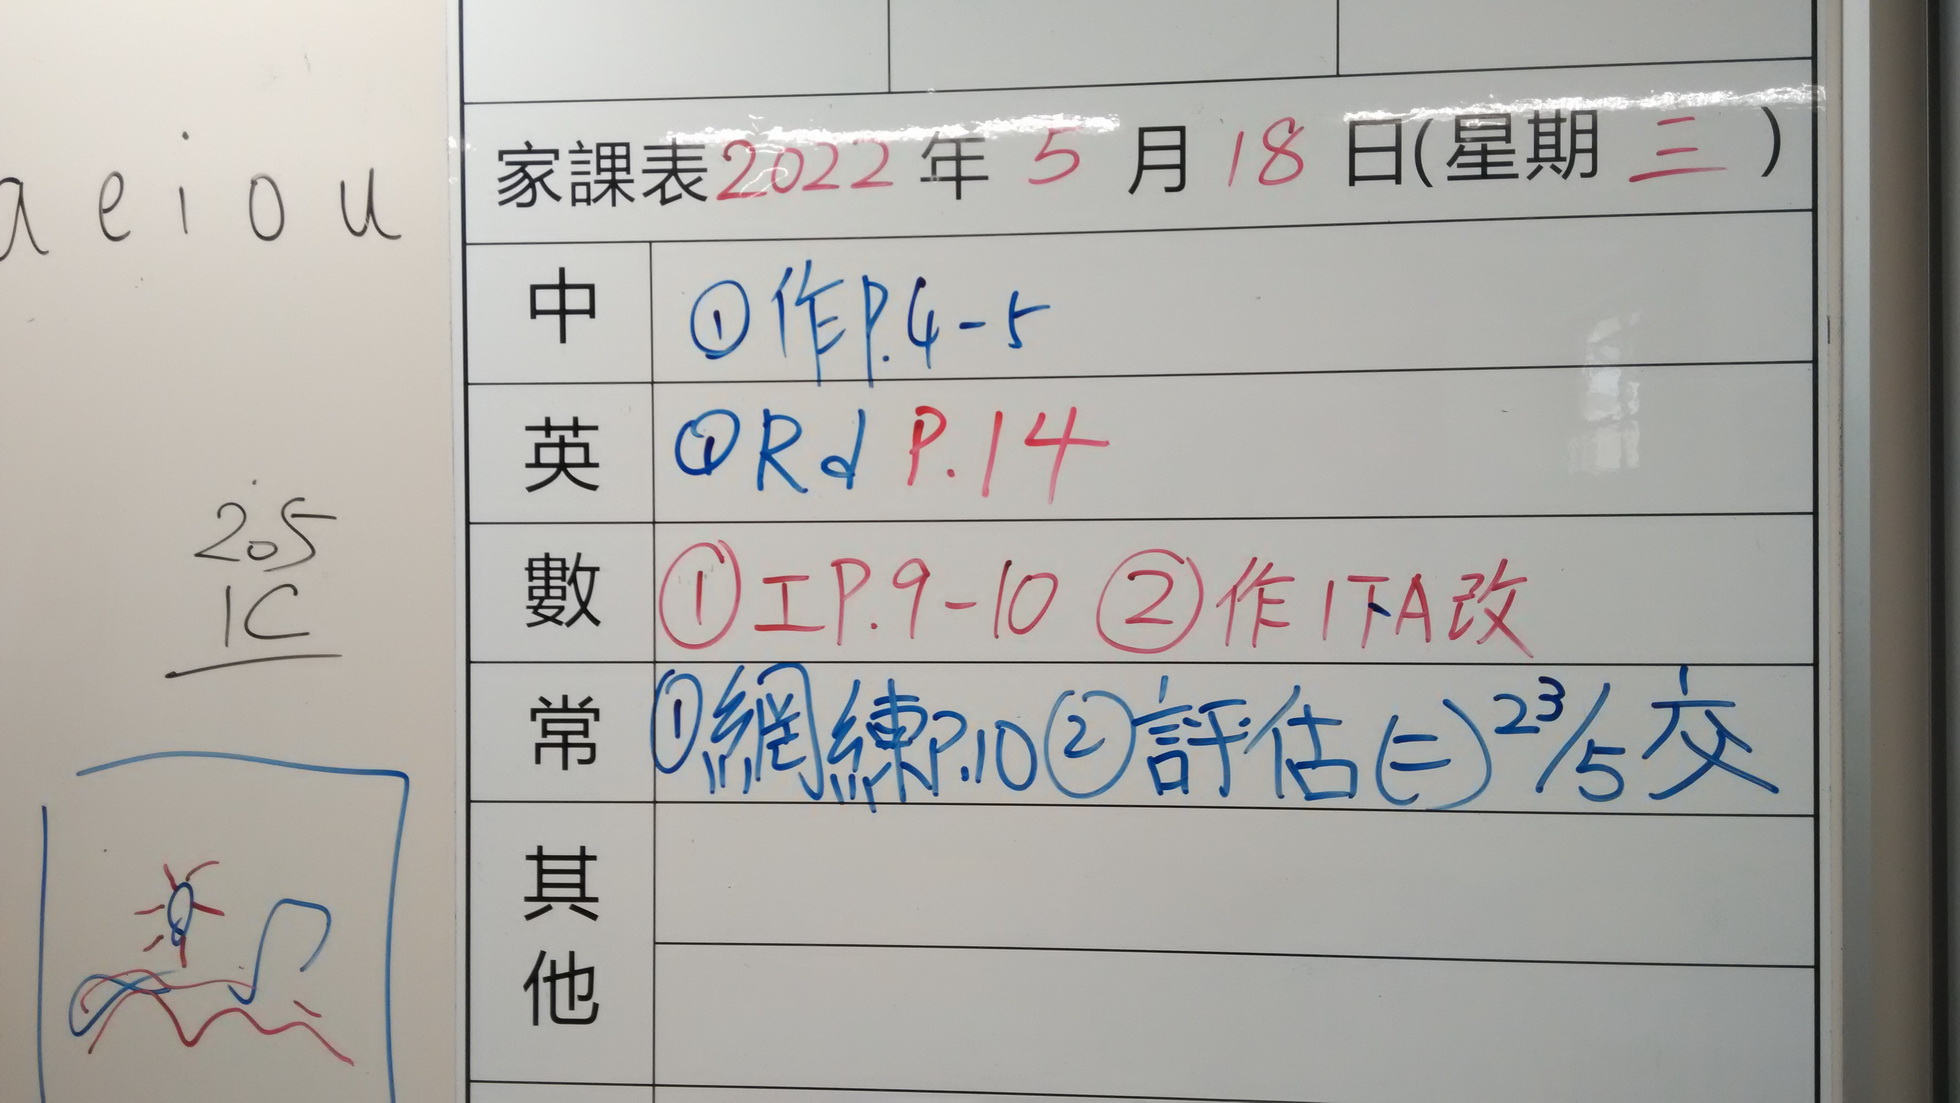 a e i o u
2.5
1C
家課表2022年5月18日(星期三)
中 ①作P.4-5
英 ①Rd P.14
數 ①工P.9-10 ②作1下A改
常 ①網練P.10②評估(二)23/5交
其他